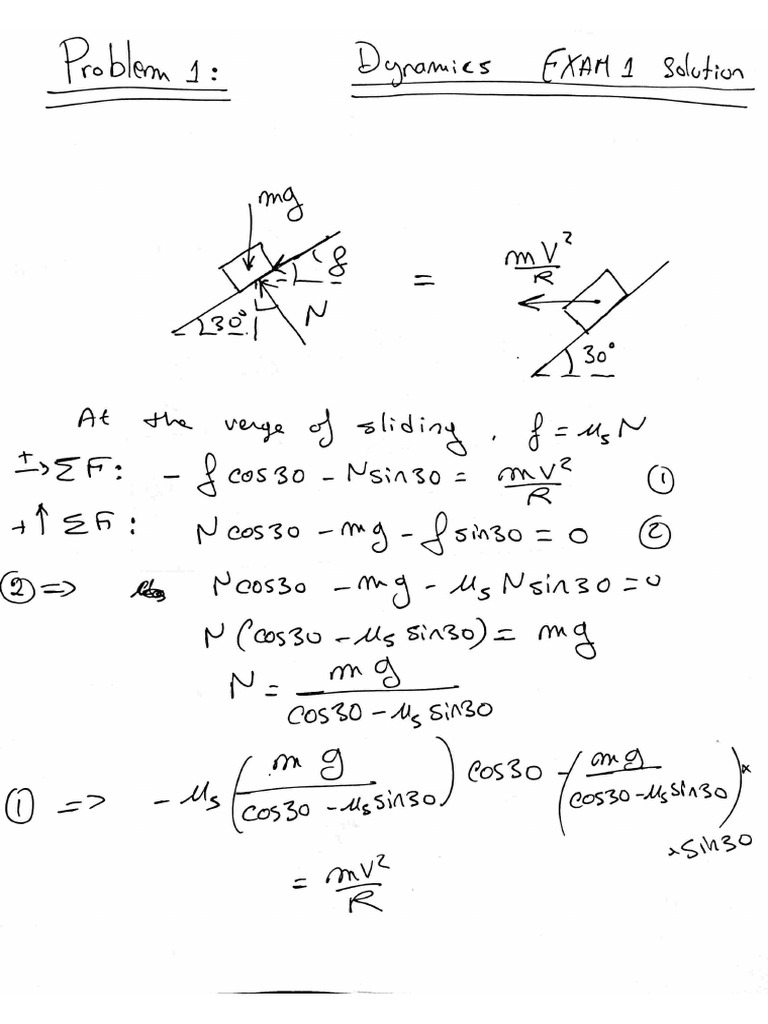 Problem 1: Dynamics EXAM 1 Solution
mg
f
30°
N
=
mV²/R
30°
At the verge of sliding, f = μs N
+→ ΣF: - f cos30 - N sin30 = mV²/R ①
+↑ ΣF: N cos30 - mg - f sin30 = 0 ②
② => N cos30 - mg - μs N sin30 = 0
N (cos30 - μs sin30) = mg
N = mg / cos30 - μs sin30
① => - μs (mg / cos30 - μs sin30) cos30 - (mg / cos30 - μs sin30) ×
× sin30
= mV²/R